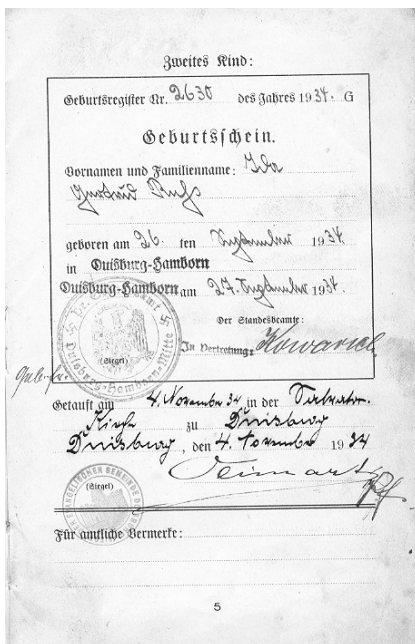 Zweites Kind:
Geburtsregister Nr. 2630 des Jahres 1934. G
Geburtsschein.
Vornamen und Familienname: Ida
Gertrud
geboren am 26. ten September 1934.
in Duisburg-Hamborn
Duisburg-Hamborn am 27. September 1934.
Der Standesbeamte:
In Vertretung:
(Siegel)
Geb. fr.
Getauft am 4. November 34 in der Salvator-
Kirche zu Duisburg
Duisburg, den 4. November 1934
(Siegel)
Für amtliche Vermerke:
5